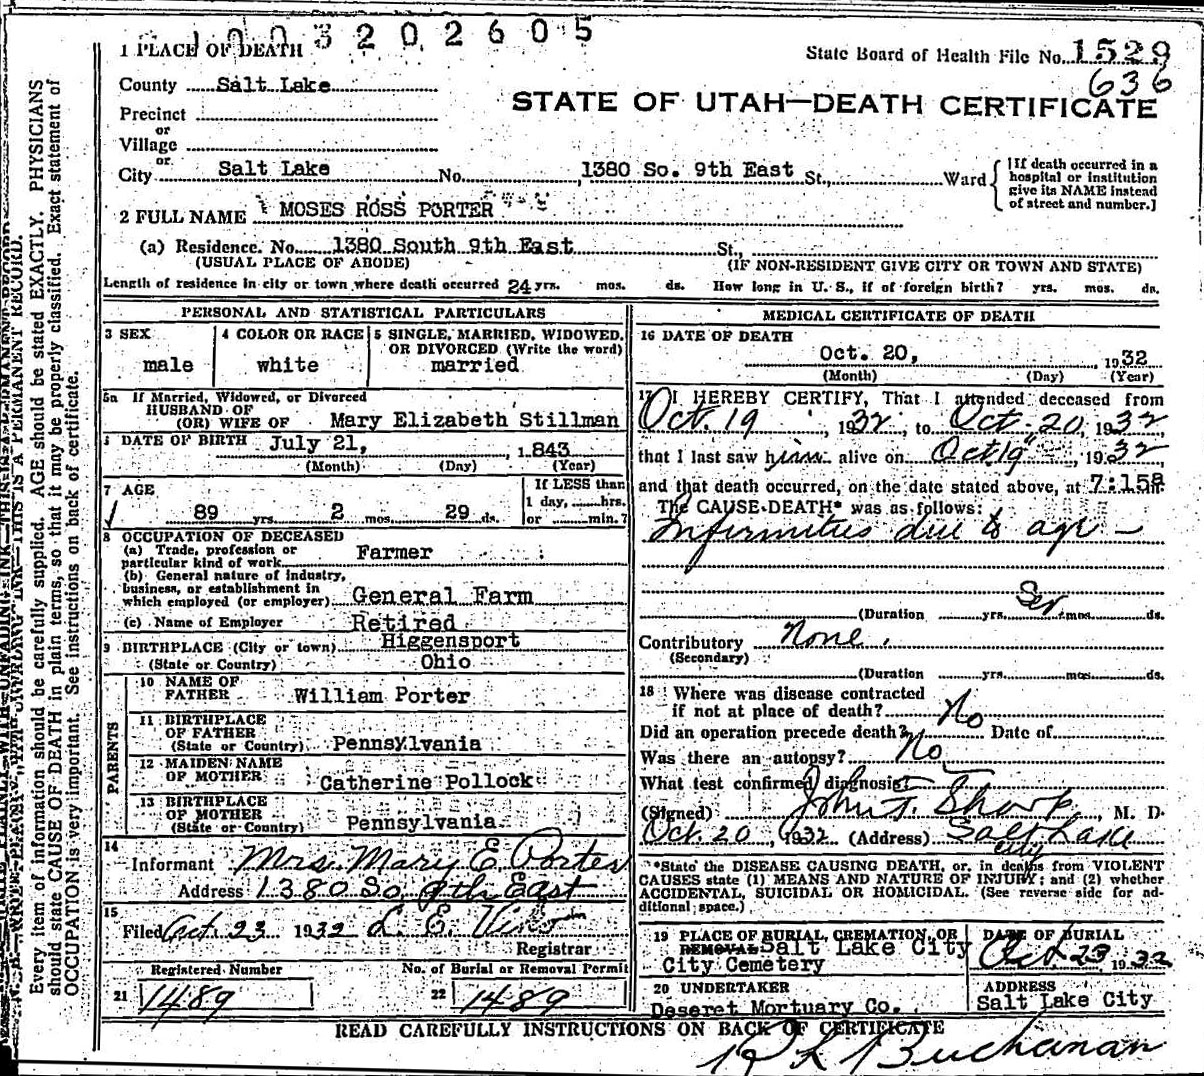 1003202605
1 PLACE OF DEATH
State Board of Health File No. 1529
636
County Salt Lake
STATE OF UTAH—DEATH CERTIFICATE
Precinct
or
Village
or
City Salt Lake No. 1380 So. 9th East St., Ward
[If death occurred in a hospital or institution give its NAME instead of street and number.]
2 FULL NAME MOSES ROSS PORTER
(a) Residence. No. 1380 South 9th East St.,
(USUAL PLACE OF ABODE) (IF NON-RESIDENT GIVE CITY OR TOWN AND STATE)
Length of residence in city or town where death occurred 24 yrs. mos. ds. How long in U. S., if of foreign birth? yrs. mos. ds.
PERSONAL AND STATISTICAL PARTICULARS
3 SEX
male
4 COLOR OR RACE
white
5 SINGLE, MARRIED, WIDOWED,
OR DIVORCED (Write the word)
married
5a If Married, Widowed, or Divorced
HUSBAND OF
(OR) WIFE OF Mary Elizabeth Stillman
DATE OF BIRTH July 21, 1843
(Month) (Day) (Year)
7 AGE
89 yrs. 2 mos. 29 ds.
If LESS than
1 day, hrs.
or min.?
8 OCCUPATION OF DECEASED
(a) Trade, profession or
particular kind of work Farmer
(b) General nature of industry,
business, or establishment in
which employed (or employer) General Farm
(c) Name of Employer Retired
9 BIRTHPLACE (City or town) Higgensport
(State or Country) Ohio
PARENTS
10 NAME OF
FATHER William Porter
11 BIRTHPLACE
OF FATHER
(State or Country) Pennsylvania
12 MAIDEN NAME
OF MOTHER Catherine Pollock
13 BIRTHPLACE
OF MOTHER
(State or Country) Pennsylvania
14
Informant Mrs. Mary E. Porter
Address 1380 So 9th East
15
Filed Oct. 23 1932 L. E.
Registrar
Registered Number
21 1489
No. of Burial or Removal Permit
22 1489
MEDICAL CERTIFICATE OF DEATH
16 DATE OF DEATH
Oct. 20, 1932
(Month) (Day) (Year)
17 I HEREBY CERTIFY, That I attended deceased from
Oct. 19, 1932, to Oct. 20, 1932
that I last saw him alive on Oct 19", 1932,
and that death occurred, on the date stated above, at 7:15a m.
The CAUSE DEATH* was as follows:
Infirmities due to age —
(Duration yrs. mos. ds.
Contributory None.
(Secondary)
(Duration yrs. mos. ds.
18 Where was disease contracted
if not at place of death?
Did an operation precede death? No Date of
Was there an autopsy? No
What test confirmed diagnosis?
(Signed) John F. Sharp, M. D.
Oct. 20, 1932 (Address) Salt Lake
City
*State the DISEASE CAUSING DEATH, or, in deaths from VIOLENT
CAUSES state (1) MEANS AND NATURE OF INJURY; and (2) whether
ACCIDENTAL, SUICIDAL OR HOMICIDAL. (See reverse side for ad-
ditional space.)
19 PLACE OF BURIAL, CREMATION, OR
REMOVAL Salt Lake City
City Cemetery
DATE OF BURIAL
Oct 23, 1932
20 UNDERTAKER
Deseret Mortuary Co.
ADDRESS
Salt Lake City
READ CAREFULLY INSTRUCTIONS ON BACK OF CERTIFICATE
Buchanan
Every item of information should be carefully supplied. AGE should be stated EXACTLY. PHYSICIANS
should state CAUSE OF DEATH in plain terms, so that it may be properly classified. Exact statement of
OCCUPATION is very important. See instructions on back of certificate.